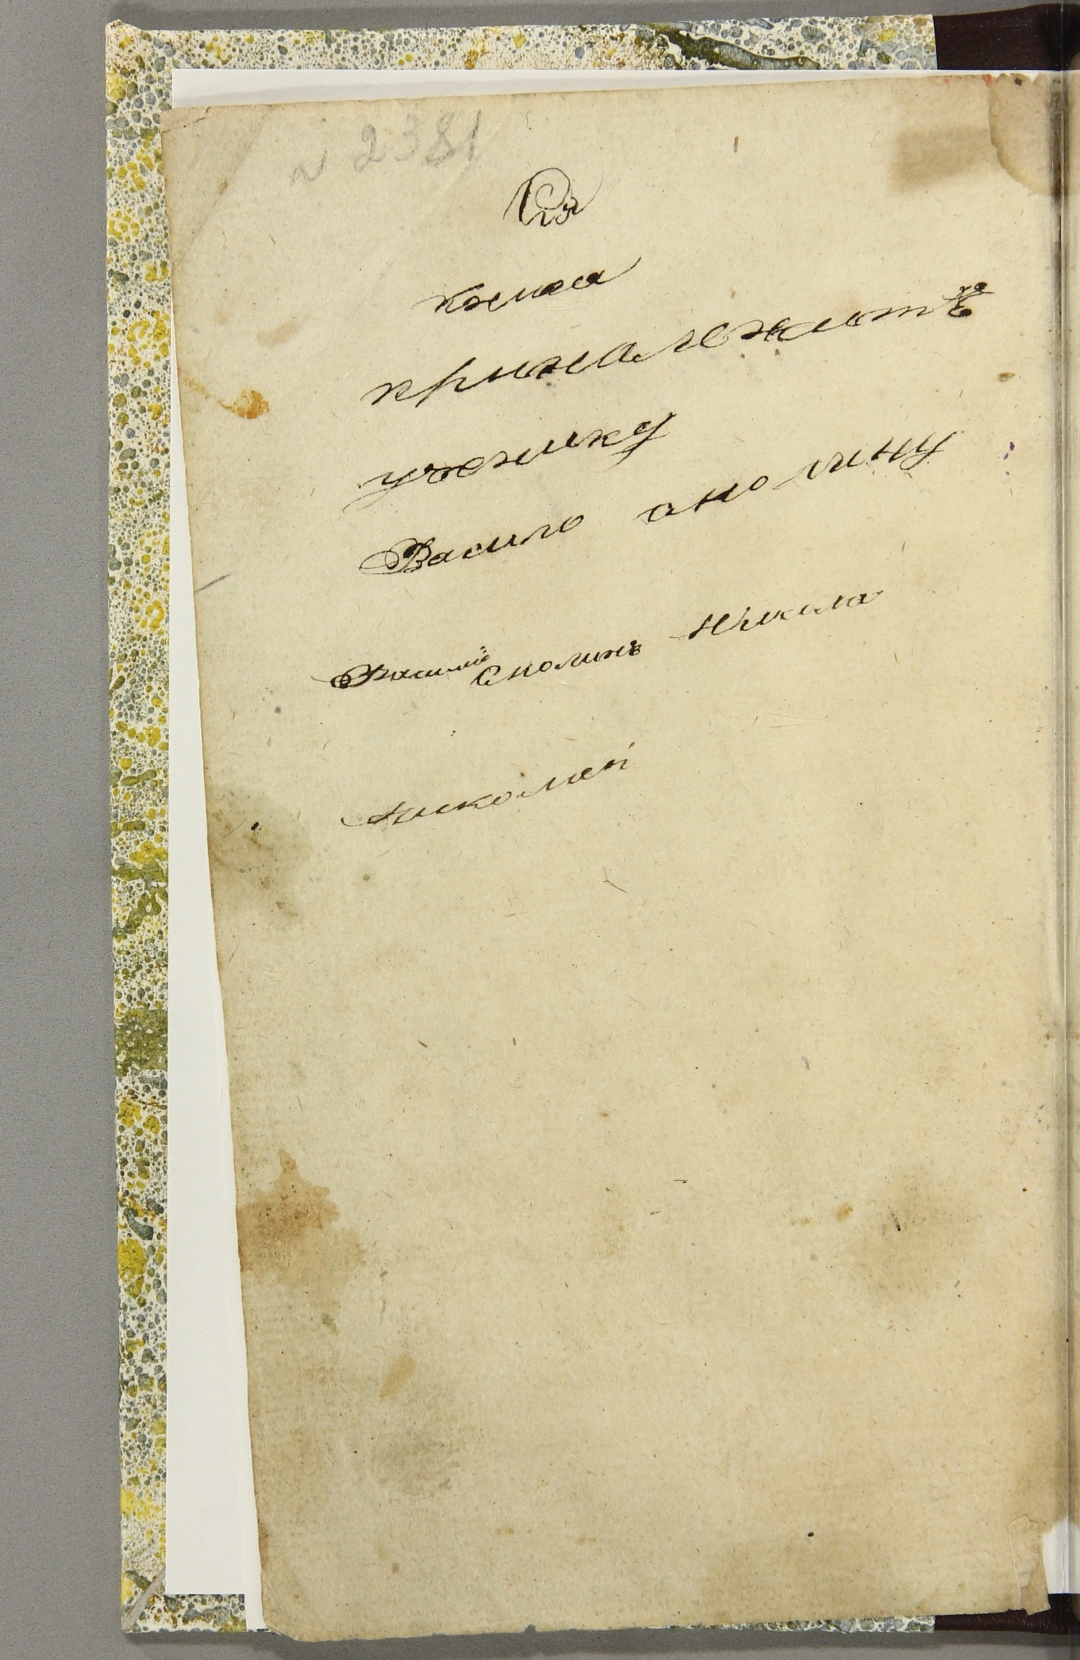 № 2381
Сія
книга
приналежитъ
ученику
Василю анолину
Василий Анолинъ Никола
Николай